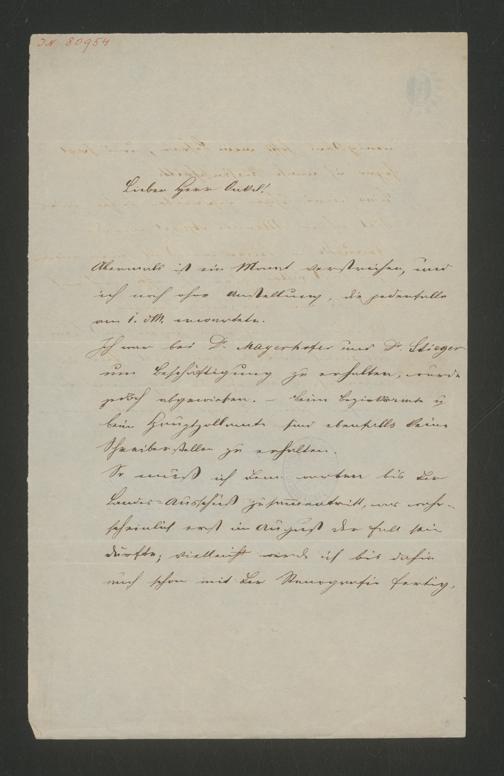 IN 80954
Lieber Herr Onkel!
Abermals ist ein Monat verstrichen, und
ich noch ohne Anstellung, die jedenfalls
am 1. d.M. erwartete.
Ich war bei Dr. Mayerhofer und Dr. Stieger
um Beschäftigung zu erhalten, wurde
jedoch abgewiesen. – Beim Bezirksamte u
beim Hauptzollamte sind ebenfalls keine
Schreiberstellen zu erhalten.
So muß ich denn warten bis der
Landes-Ausschuß zusammentritt, was wahr-
scheinlich erst im August der Fall sein
dürfte; vielleicht werde ich bis dahin
auch schon mit der Stenografie fertig,